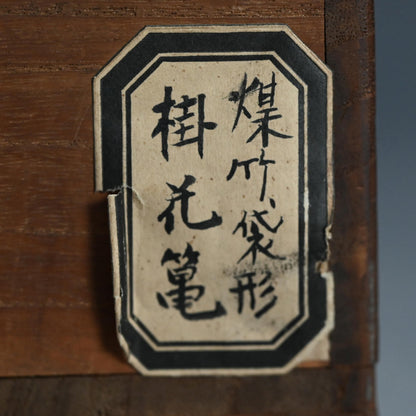 煤竹袋形
掛花籠